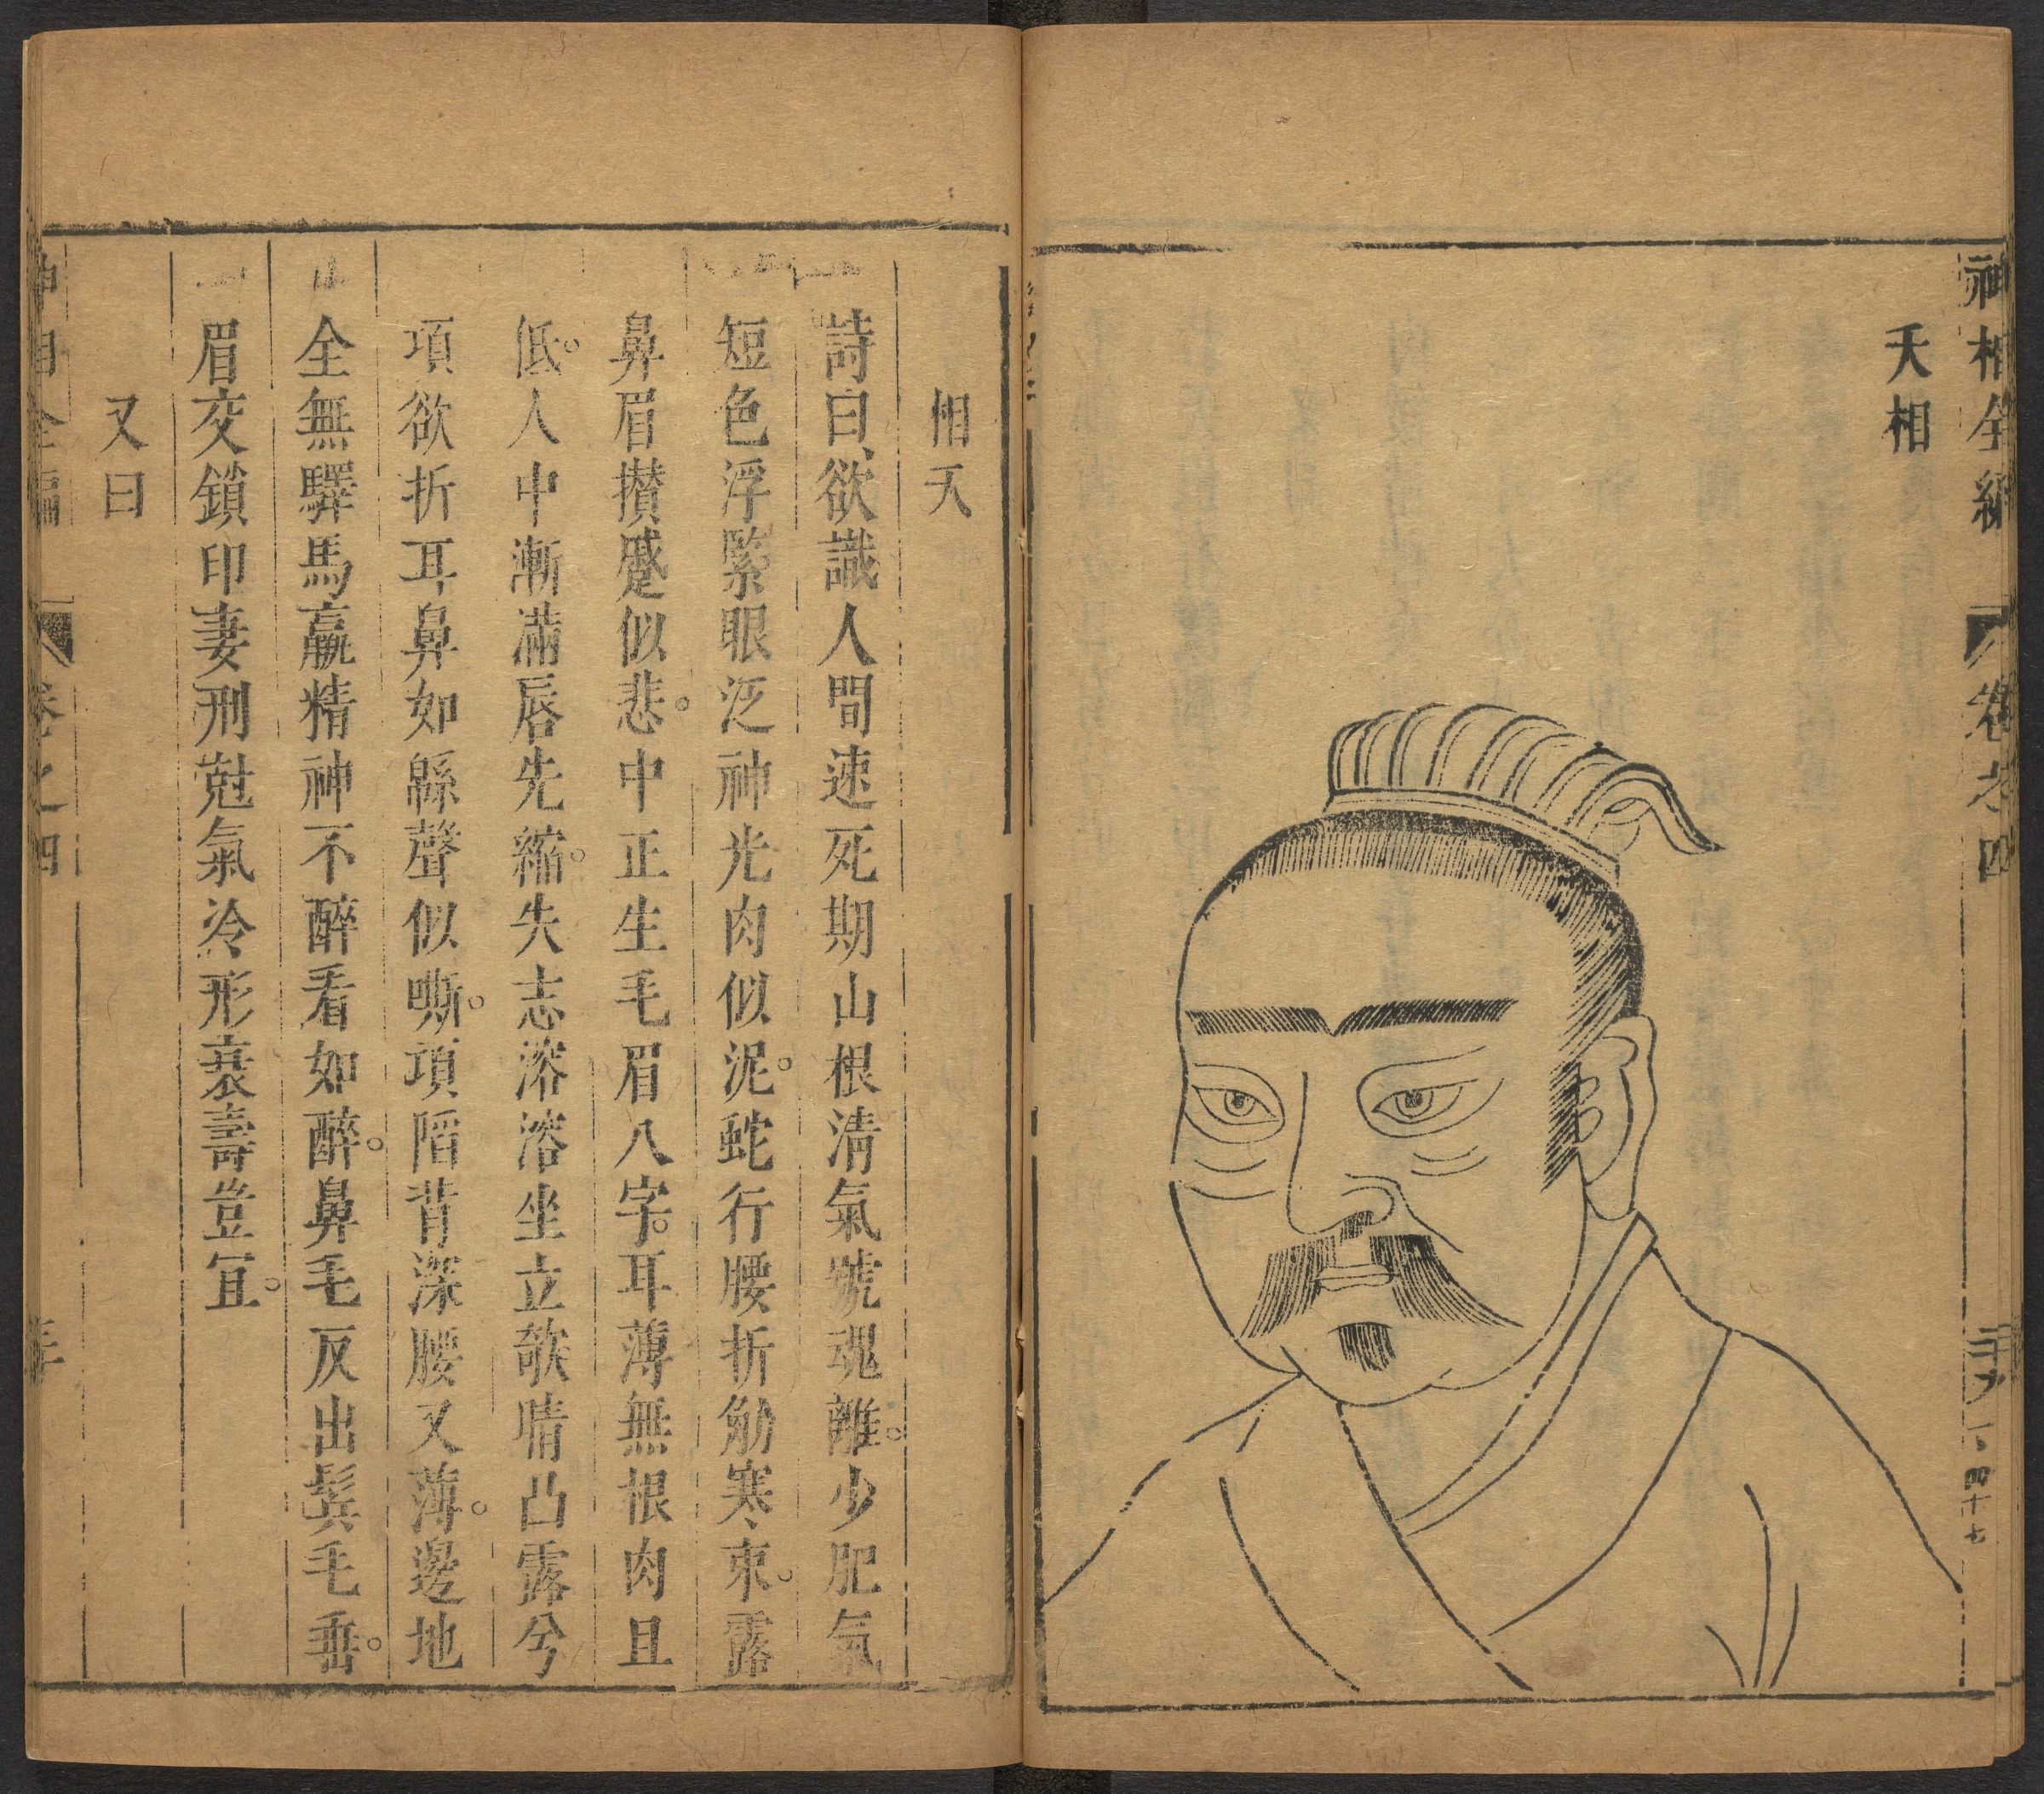 神相全編
卷之四
四十七
夭相
相夭
詩曰、欲識人間速死期山根淸氣號魂離。少肥氣
短色浮緊眼泛神光肉似泥。蛇行腰折觔寒束。露
鼻眉攅蹙似悲。中正生毛眉八字。耳薄無根肉且
低。人中漸滿唇先縮。失志溶溶坐立欹睛凸露兮
項欲折耳鼻如緜聲似嘶。項陷背深腰又薄。邊地
全無驛馬羸精神不醉看如醉。鼻毛反出鬂毛垂。
眉交鎖印妻刑尅氣冷形衰壽豈冝。
又曰
神相全編
卷之四